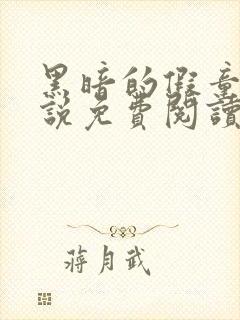 黑暗的假童
說免費閱讀
蔣月武